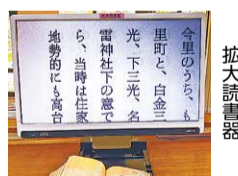 今里のうち、も
里町と、白金三
光、下三光、名
雷神社下の意で
ら、当時は住家
地勢的にも高台
拡大読書器